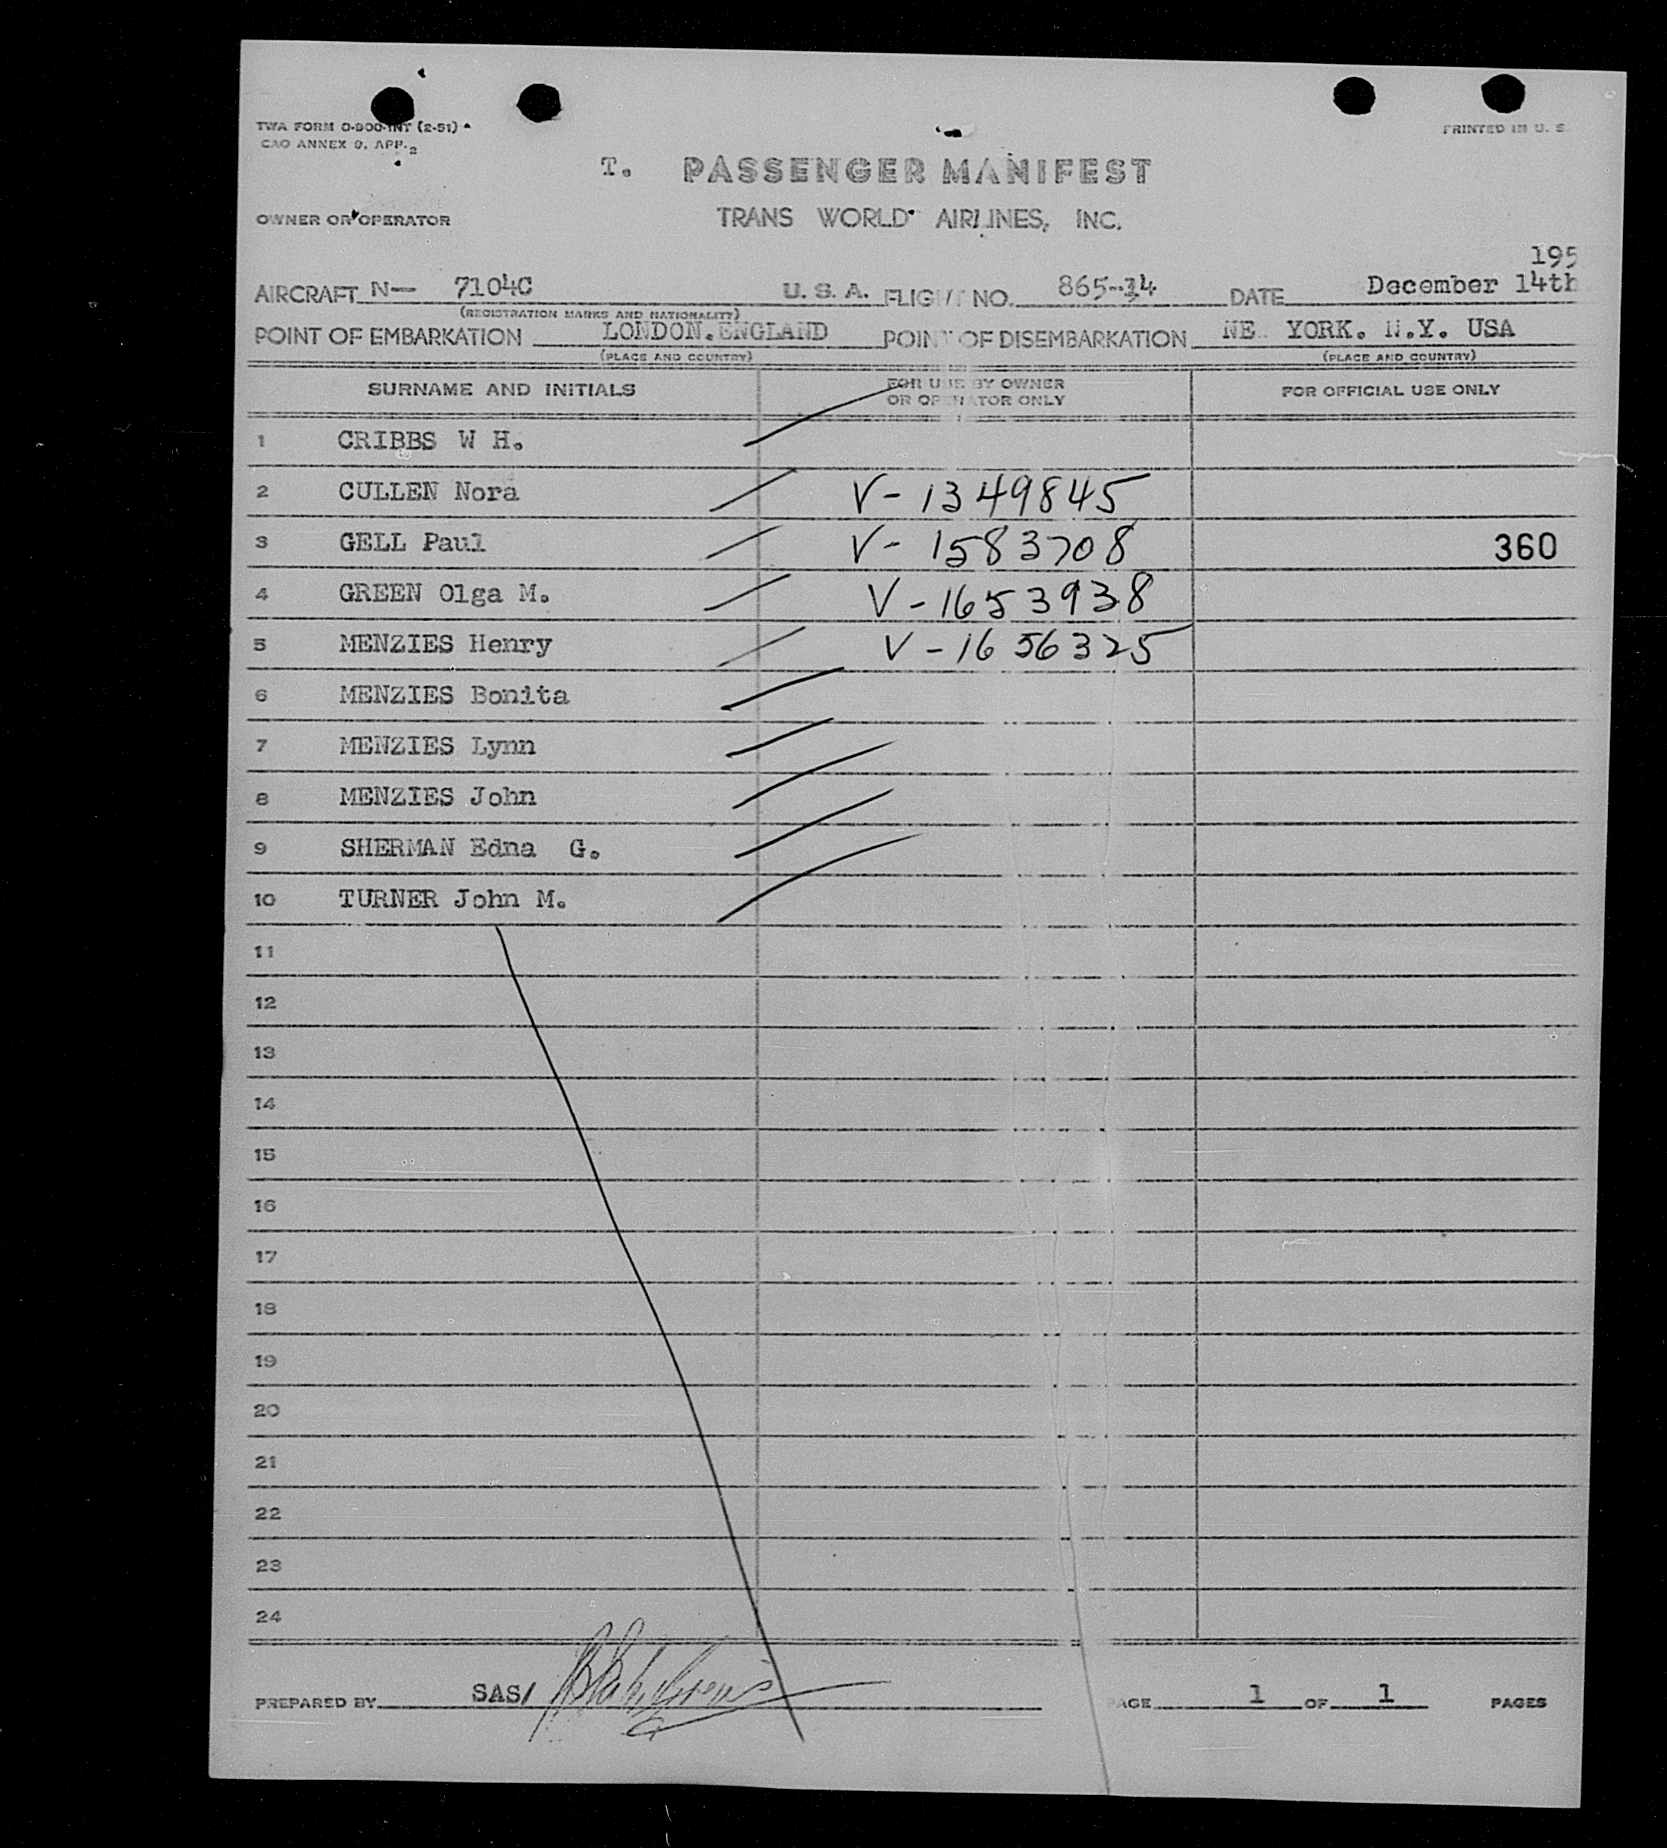 TWA FORM O-900-INT (2-51)
CAO ANNEX 9, APP. 2
PRINTED IN U. S.
T. PASSENGER MANIFEST
OWNER OR OPERATOR
TRANS WORLD AIRLINES, INC.
195
AIRCRAFT N— 7104C U. S. A. FLIGHT NO. 865-14 DATE December 14th
(REGISTRATION MARKS AND NATIONALITY)
POINT OF EMBARKATION LONDON.ENGLAND POINT OF DISEMBARKATION NE YORK. N.Y. USA
(PLACE AND COUNTRY) (PLACE AND COUNTRY)
SURNAME AND INITIALS FOR USE BY OWNER OR OPERATOR ONLY FOR OFFICIAL USE ONLY
1 CRIBBS W H.
2 CULLEN Nora V-1349845
3 GELL Paul V-1583708 360
4 GREEN Olga M. V-1653938
5 MENZIES Henry V-1656325
6 MENZIES Bonita
7 MENZIES Lynn
8 MENZIES John
9 SHERMAN Edna G.
10 TURNER John M.
11
12
13
14
15
16
17
18
19
20
21
22
23
24
PREPARED BY SAS/ PAGE 1 OF 1 PAGES